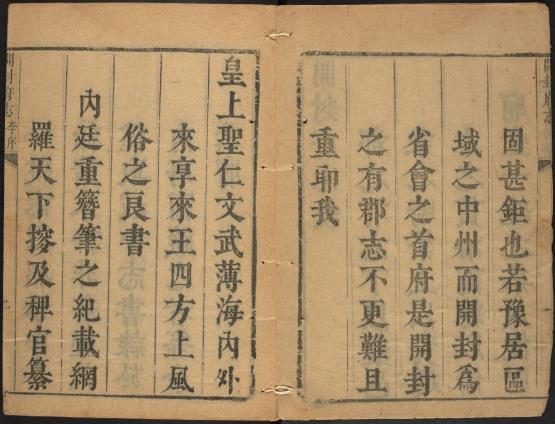 固甚鉅也若豫居區
域之中州而開封為
省會之首府是開封
之有郡志不更難且
重耶我
皇上聖仁文武薄海內外
來享來王四方上風
俗之良書
內廷重簪筆之紀載網
羅天下搜及稗官纂
開封府志